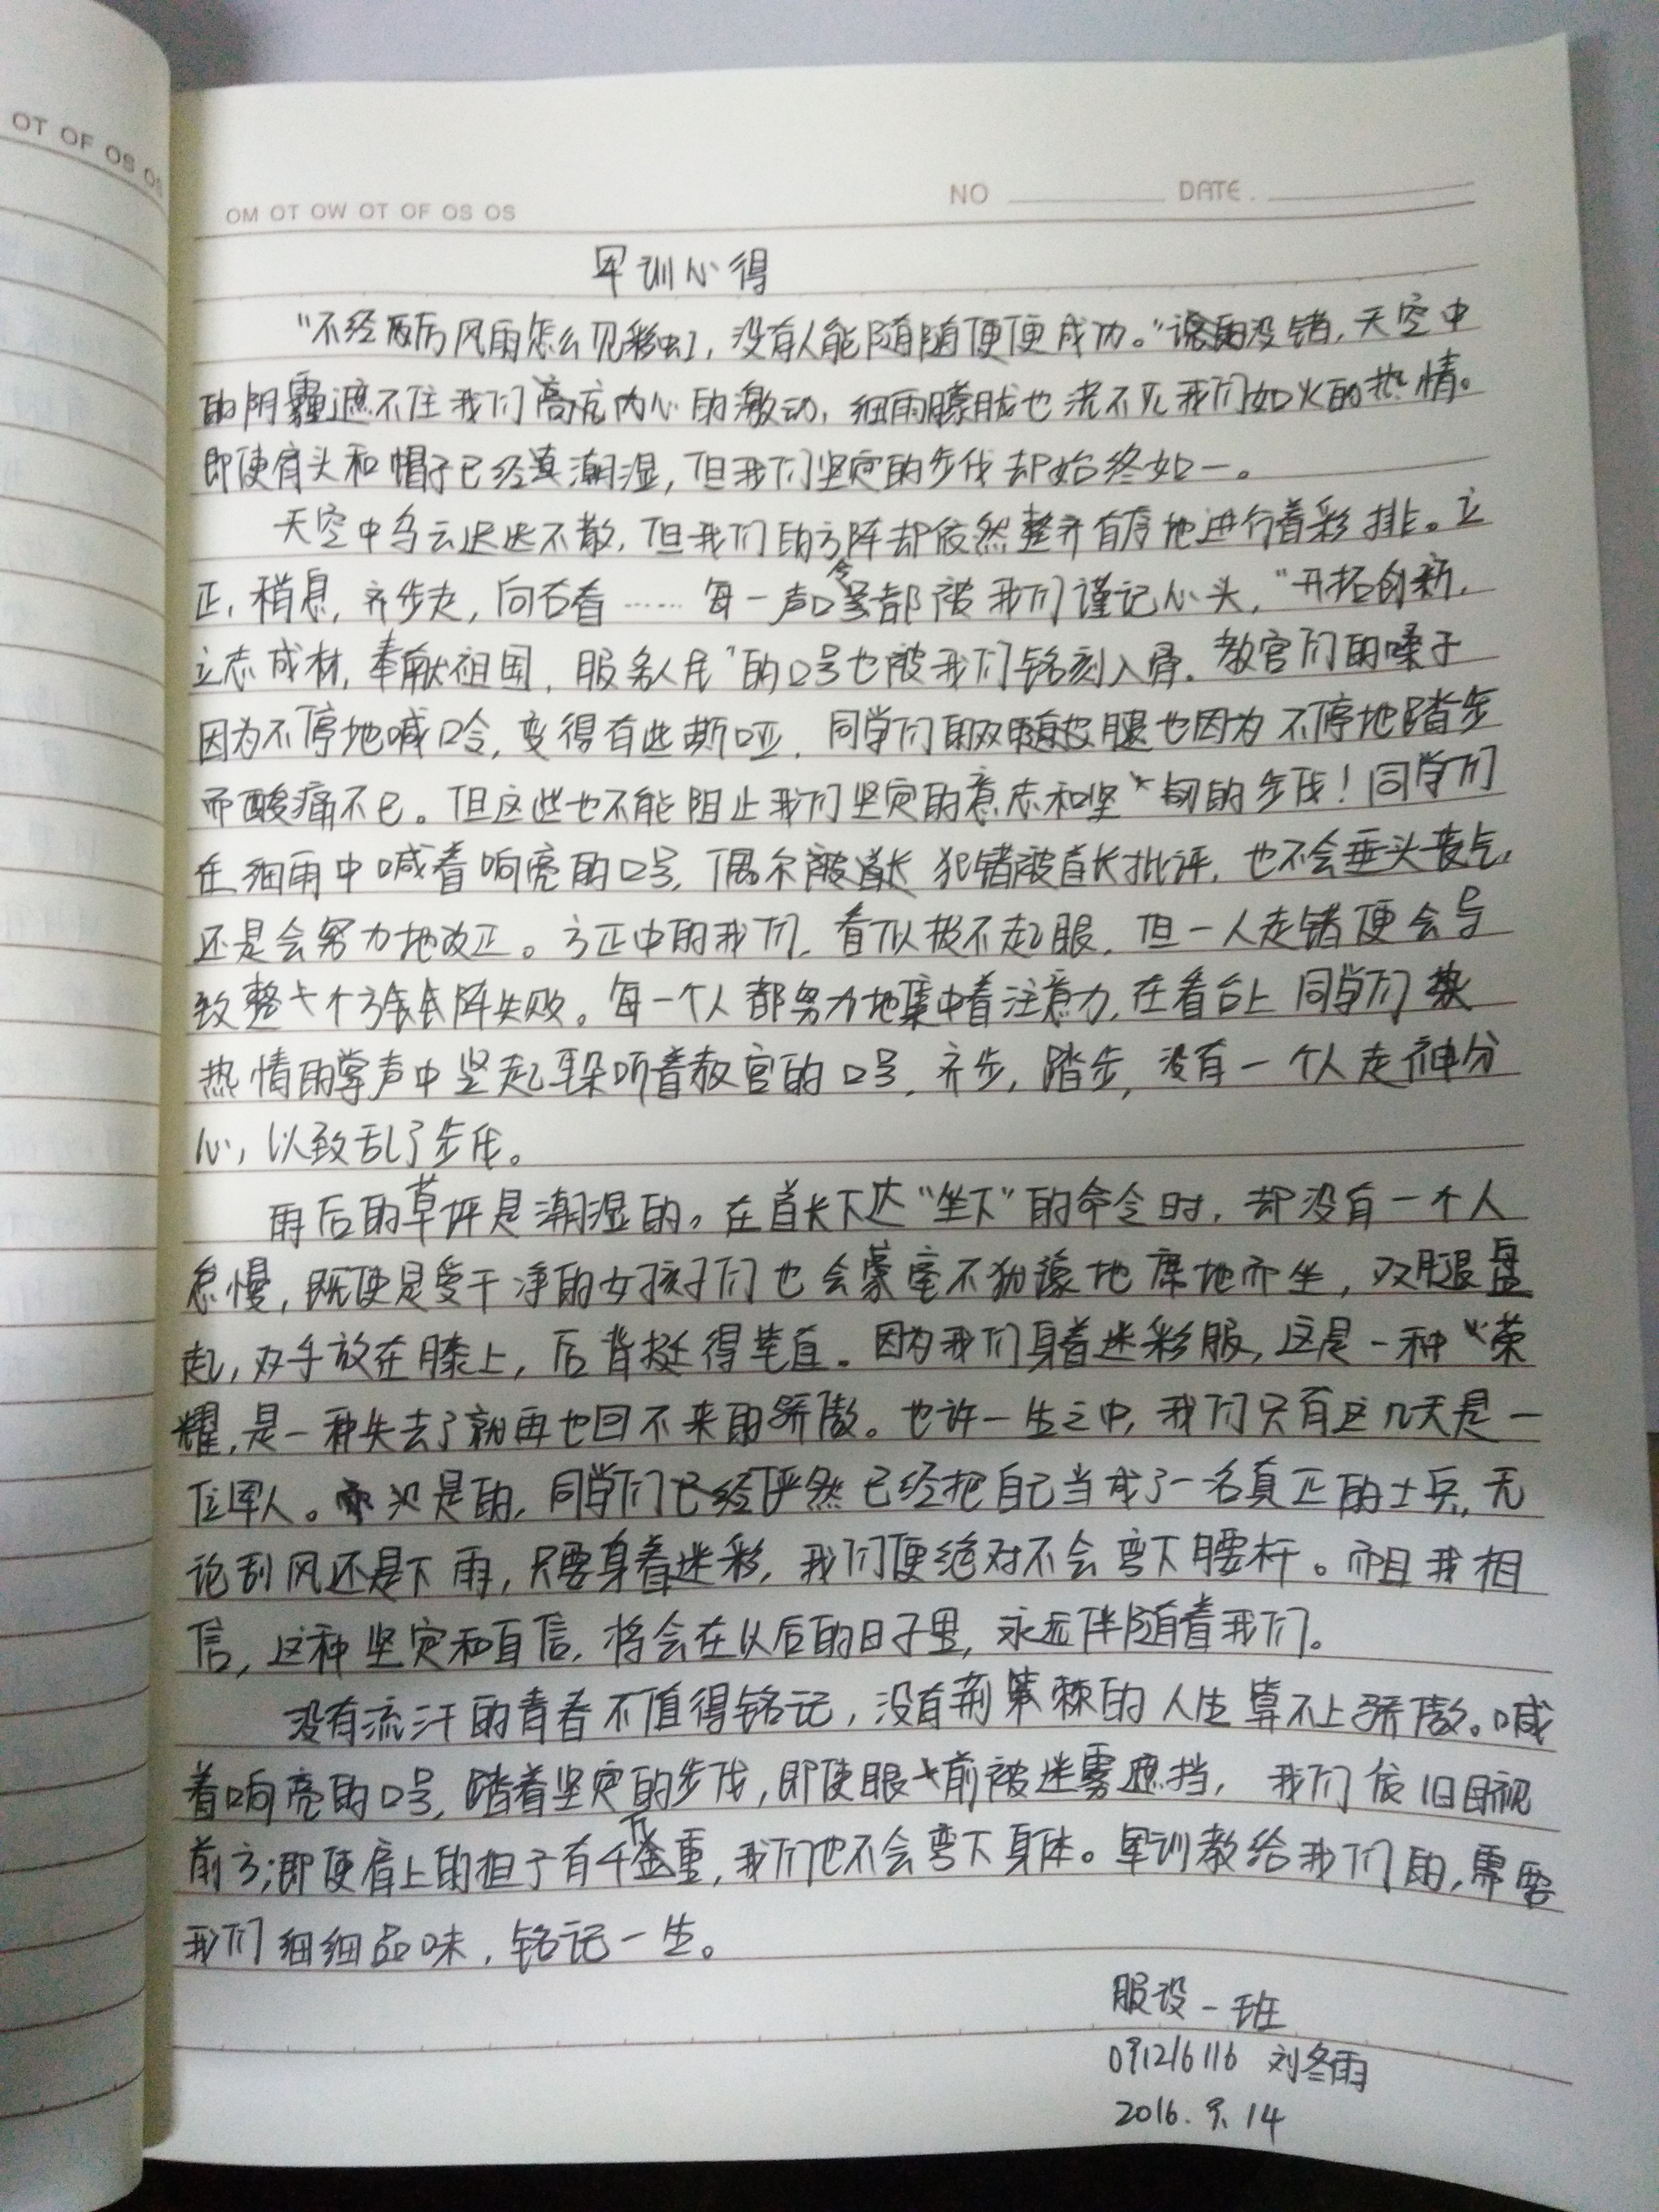 OT OF OS OS
OM OT OW OT OF OS OS NO DATE.
军训心得
“不经历风雨怎么见彩虹,没有人能随随便便成功。”说的没错,天空中
的阴霾遮不住我们高亢内心的激动,细雨朦胧也浇不灭我们如火的热情。
即使肩头和帽子已经潮湿,但我们坚定的步伐却始终如一。
天空中乌云迟迟不散,但我们的方阵却依然整齐有序地进行着彩排。立
正,稍息,齐步走,向右看……每一声口令都被我们谨记心头,“开拓创新,
立志成材,奉献祖国,服务人民”的口号也被我们铭刻入骨。教官们的嗓子
因为不停地喊口令,变得有些嘶哑,同学们的双腿也因为不停地踏步
而酸痛不已。但这些也不能阻止我们坚定的意志和坚韧的步伐!同学们
在细雨中喊着响亮的口号,偶尔犯错被首长批评,也不会垂头丧气,
还是会努力地改正。方正中的我们,看似极不起眼,但一人走错便会导
致整个方阵失败。每一个人都努力地集中着注意力,在看台上同学们
热情的掌声中竖起耳朵听着教官的口号,齐步,踏步,没有一个人走神分
心,以致乱了步伐。
雨后的草坪是潮湿的。在首长下达“坐下”的命令时,却没有一个人
怠慢,既使是爱干净的女孩子们也会毫不犹豫地席地而坐,双腿盘
起,双手放在膝上,后背挺得笔直。因为我们身着迷彩服,这是一种荣
耀,是一种失去了就再也回不来的骄傲。也许一生之中,我们只有这几天是一
位军人。但是的,同学们俨然已经把自己当成了一名真正的士兵,无
论刮风还是下雨,只要身着迷彩,我们便绝对不会弯下腰杆。而且我相
信,这种坚定和自信,将会在以后的日子里,永远伴随着我们。
没有流汗的青春不值得铭记,没有荆棘的人生算不上骄傲。喊
着响亮的口号,踏着坚定的步伐,即使眼前被迷雾遮挡,我们依旧目视
前方;即使肩上的担子有千斤重,我们也不会弯下身体。军训教给我们的,需要
我们细细品味,铭记一生。
服设一班
091216116 刘冬雨
2016.9.14